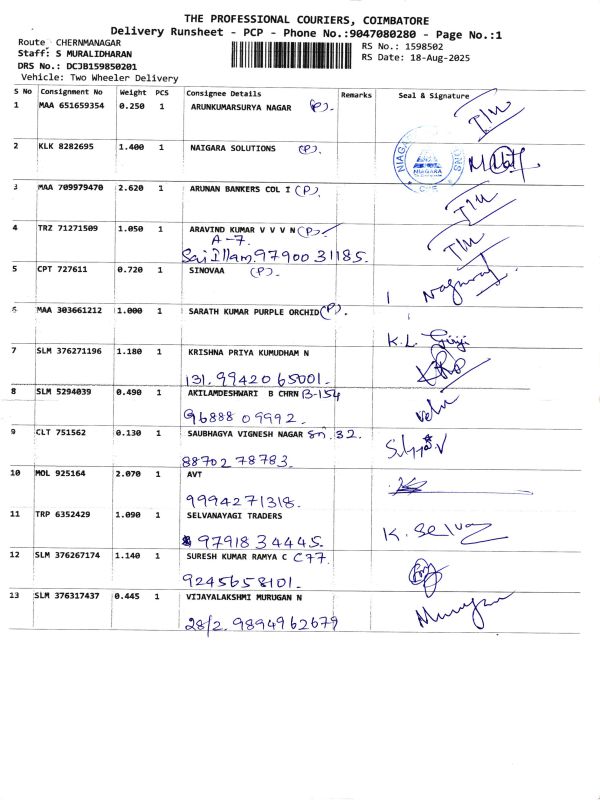 THE PROFESSIONAL COURIERS, COIMBATORE
Delivery Runsheet - PCP - Phone No.:9047080280 - Page No.:1
Route CHERNMANAGAR RS No.: 1598502
Staff: S MURALIDHARAN RS Date: 18-Aug-2025
DRS No.: DCJB159850201
Vehicle: Two Wheeler Delivery
S No Consignment No Weight PCS Consignee Details Remarks Seal & Signature
1 MAA 651659354 0.250 1 ARUNKUMARSURYA NAGAR (P).
2 KLK 8282695 1.400 1 NAIGARA SOLUTIONS (P). NIAGARA
3 MAA 709979470 2.620 1 ARUNAN BANKERS COL I (P).
4 TRZ 71271509 1.050 1 ARAVIND KUMAR V V V N (P)
A-7.
Sai Illam. 97900 31185.
5 CPT 727611 0.720 1 SINOVAA (P).
6 MAA 303661212 1.000 1 SARATH KUMAR PURPLE ORCHID (P).
K.L.
7 SLM 376271196 1.180 1 KRISHNA PRIYA KUMUDHAM N
131. 99420 65001.
8 SLM 5294039 0.490 1 AKILAMDESHWARI B CHRN B-154
96888 09992. Velu
9 CLT 751562 0.130 1 SAUBHAGYA VIGNESH NAGAR 32.
88702 78783.
10 MOL 925164 2.070 1 AVT
9994271318.
11 TRP 6352429 1.090 1 SELVANAYAGI TRADERS
97918 34445. K. Selva
12 SLM 376267174 1.140 1 SURESH KUMAR RAMYA C C77.
9245658101.
13 SLM 376317437 0.445 1 VIJAYALAKSHMI MURUGAN N
28/2. 9894962679 Murugan